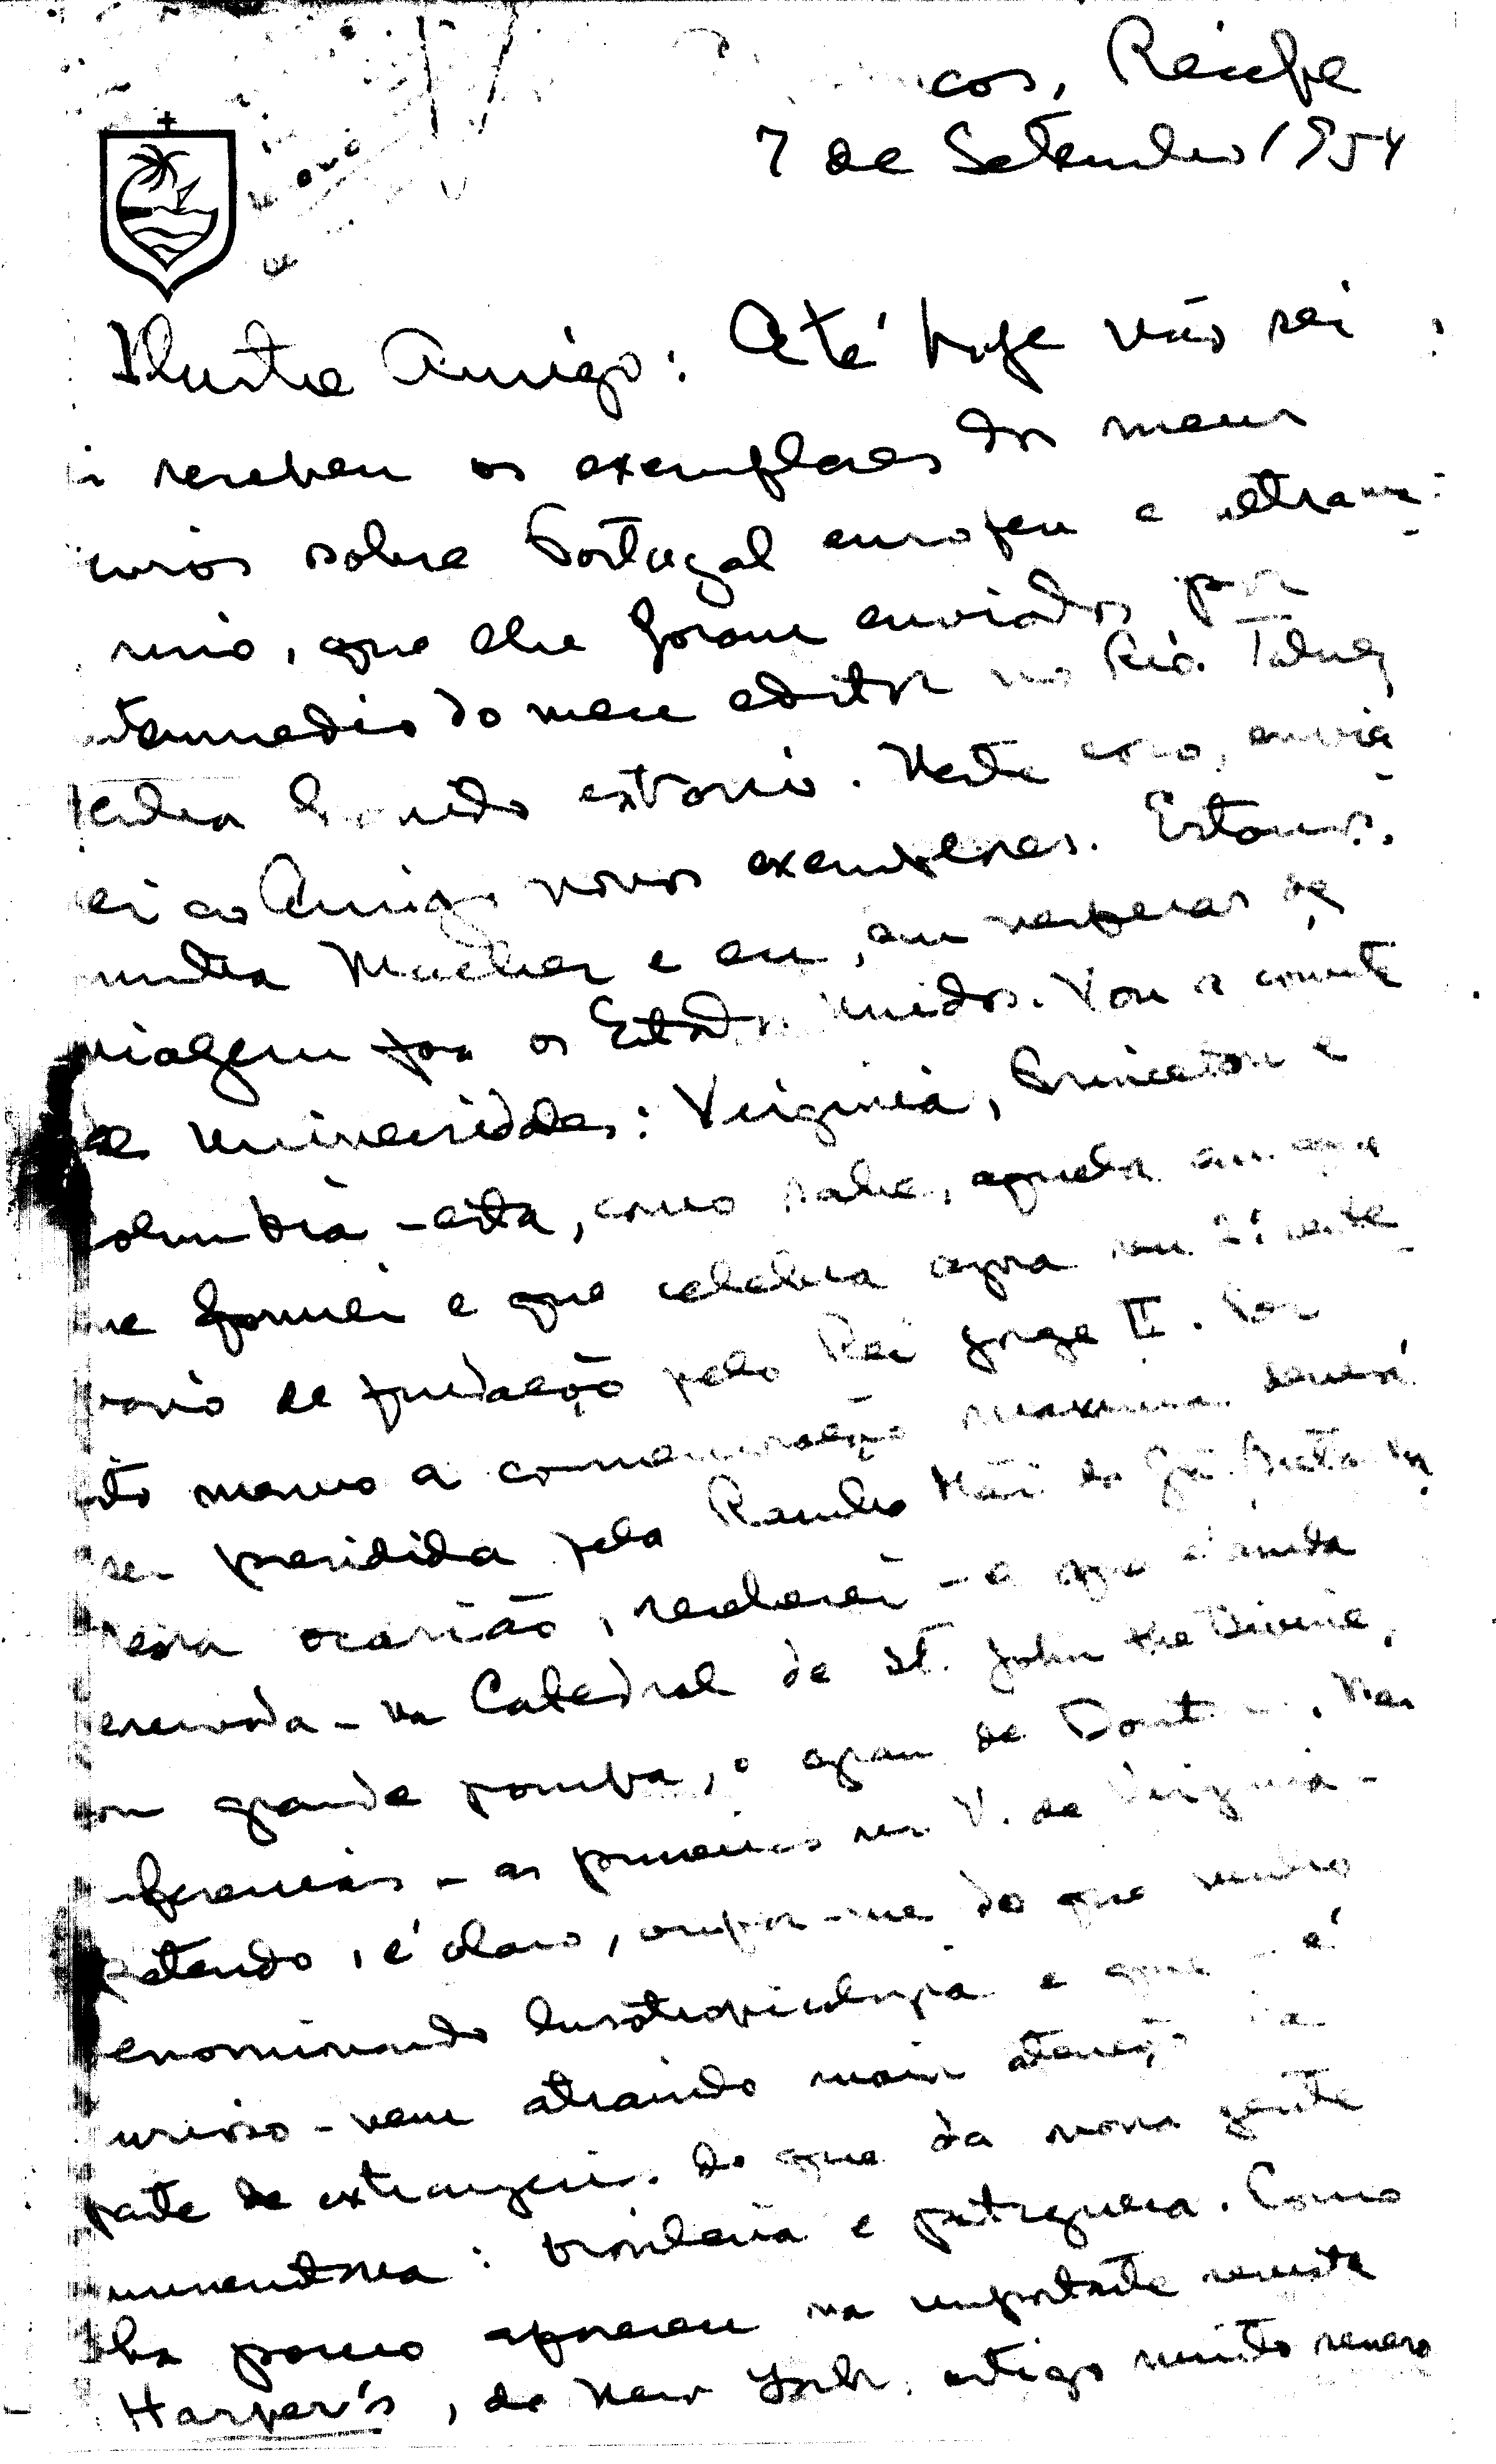 cos, Recife
7 de Setembro 1954
Ilustre Amigo: Até hoje não sei
recebeu os exemplares dos meus
sobre Portugal europeu e ultrama-
rino, que lhe foram enviados por
intermedio do meu editor no Rio. Talvez
tenha havido extravio. Neste caso, envia-
rei ao Amigo novos exemplares. Estamos,
minha Mulher e eu, em vesperas de
viagem para os Estados Unidos. Vou a convite
de Universidades: Virginia, Princeton e
Columbia – esta, como sabe, aquela em que
me formei e que celebra agora seu 2º cente-
nario de fundação pelo Rei Jorge II. Por
isto mesmo a comemoração maxima deverá
ser presidida pela Rainha Mãi da Grã Bretanha
nessa ocasião, receberei – e que é ainda
– na Catedral de St. John the Divine,
com grande pompa, o grau de Doutor. Nas
conferencias – as primeiras na U. de Virginia –
pretendo, é claro, ocupar-me do que venho
denominando lusotropicologia e que – é
curioso – vem atraindo mais atenção da
parte de extrangeiros do que da nossa gente
: brasileira e portuguesa. Como
ha pouco apareceu na importante revista
Harper's, de New York, artigo muito